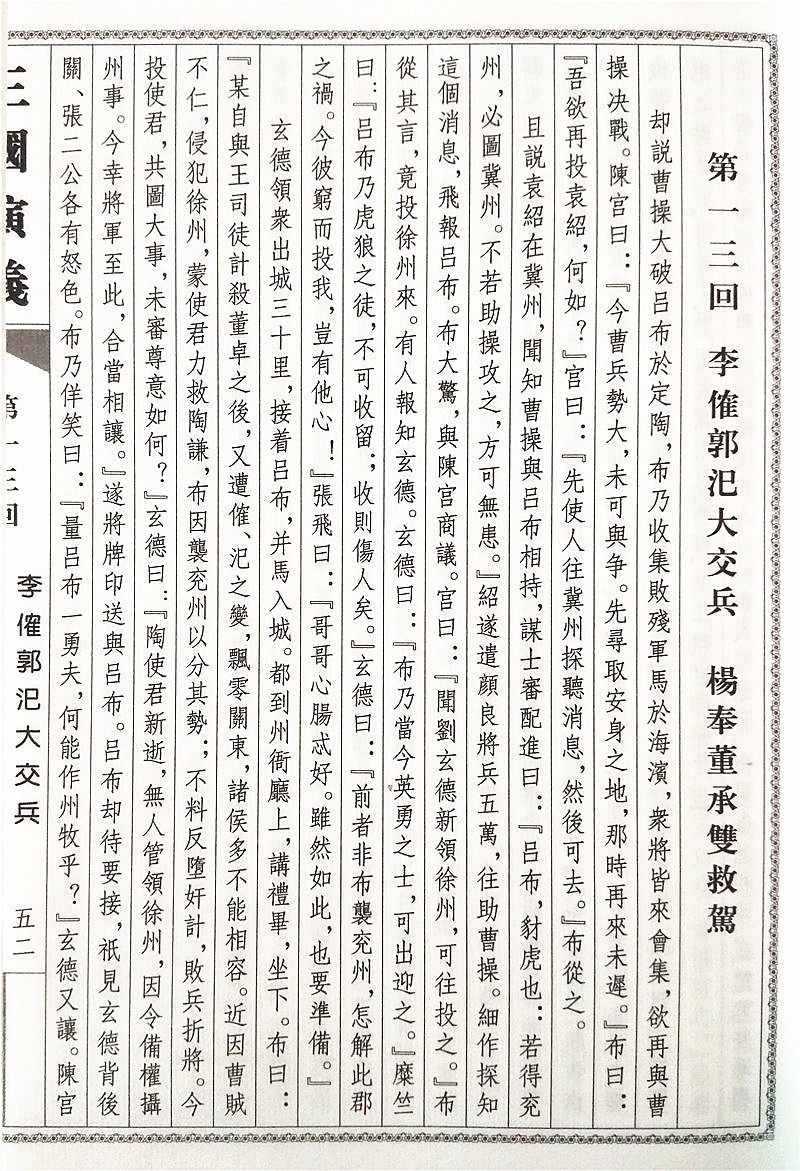 第一三回　李傕郭汜大交兵　楊奉董承雙救駕
却説曹操大破吕布於定陶，布乃收集敗殘軍馬於海濱，衆將皆來會集，欲再與曹
操决戰。陳宫曰：『今曹兵勢大，未可與争。先尋取安身之地，那時再來未遲。』布曰：
『吾欲再投袁紹，何如？』宫曰：『先使人往冀州探聽消息，然後可去。』布從之。
且説袁紹在冀州，聞知曹操與吕布相持，謀士審配進曰：『吕布，豺虎也：若得兖
州，必圖冀州。不若助操攻之，方可無患。』紹遂遣顔良將兵五萬，往助曹操。細作探知
這個消息，飛報吕布。布大驚，與陳宫商議。宫曰：『聞劉玄德新領徐州，可往投之。』布
從其言，竟投徐州來。有人報知玄德。玄德曰：『布乃當今英勇之士，可出迎之。』糜竺
曰：『吕布乃虎狼之徒，不可收留；收則傷人矣。』玄德曰：『前者非布襲兖州，怎解此郡
之禍。今彼窮而投我，豈有他心！』張飛曰：『哥哥心腸忒好。雖然如此，也要準備。』
玄德領衆出城三十里，接着吕布，并馬入城。都到州衙廳上，講禮畢，坐下。布曰：
『某自與王司徒計殺董卓之後，又遭傕、汜之變，飄零關東，諸侯多不能相容。近因曹賊
不仁，侵犯徐州，蒙使君力救陶謙，布因襲兖州以分其勢；不料反墮奸計，敗兵折將。今
投使君，共圖大事，未審尊意如何？』玄德曰：『陶使君新逝，無人管領徐州，因令備權攝
州事。今幸將軍至此，合當相讓。』遂將牌印送與吕布。吕布却待要接，衹見玄德背後
關、張二公各有怒色。布乃佯笑曰：『量吕布一勇夫，何能作州牧乎？』玄德又讓。陳宫
三國演義
第一三回
李傕郭汜大交兵
五二